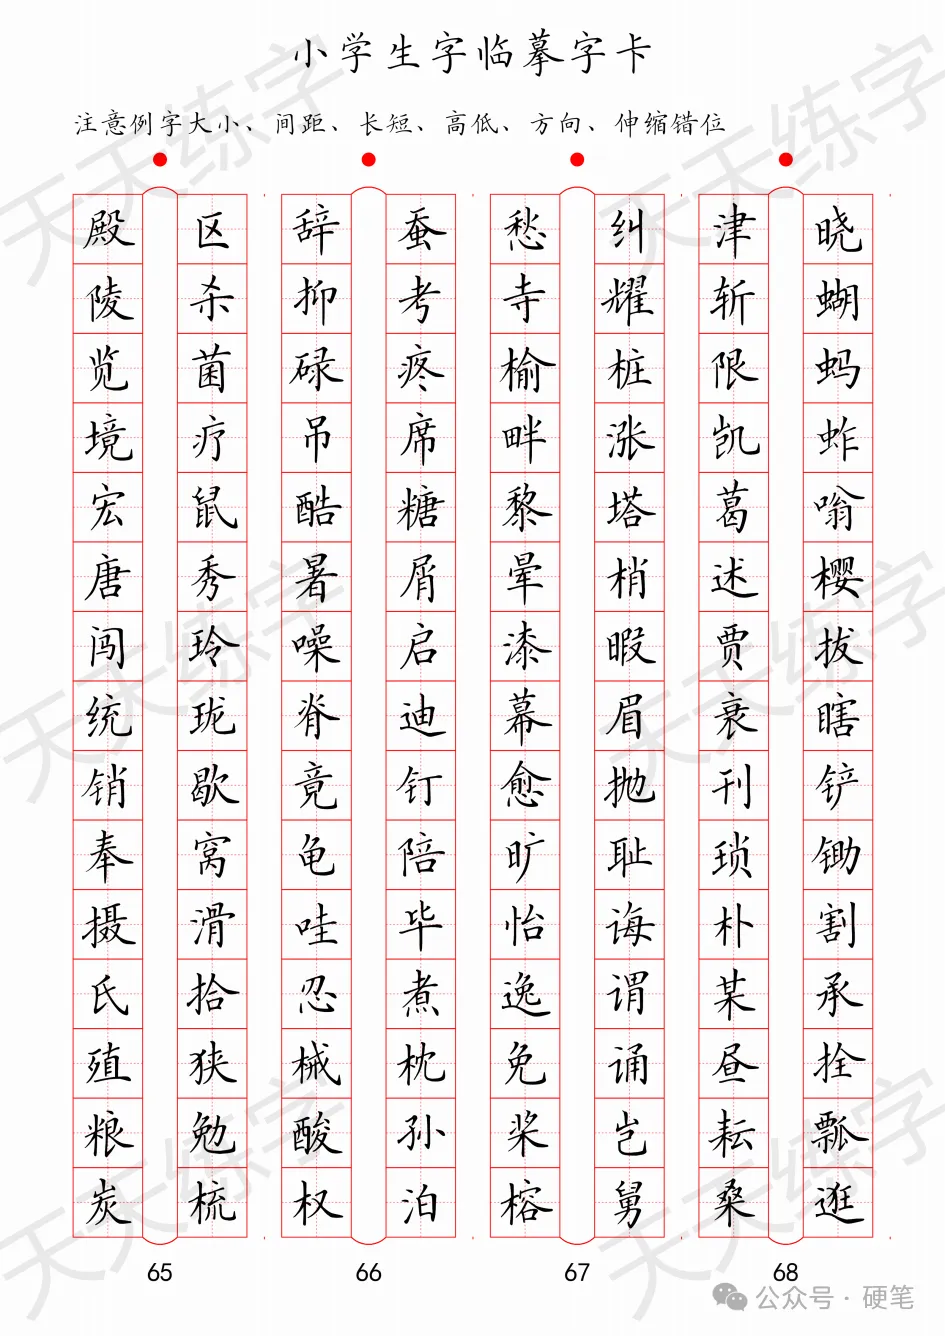 小学生字临摹字卡
注意例字大小、间距、长短、高低、方向、伸缩错位
殿 区 辞 蚕 愁 纠 津 晓
陵 杀 抑 考 寺 耀 斩 蝴
览 菌 碌 疼 榆 桩 限 蚂
境 疗 吊 席 畔 涨 凯 蚱
宏 鼠 酷 糖 黎 塔 葛 嗡
唐 秀 暑 屑 晕 梢 述 樱
闯 玲 噪 启 漆 暇 贾 拔
统 珑 脊 迪 幕 眉 衰 瞎
销 歇 竟 钉 愈 抛 刊 铲
奉 窝 龟 陪 旷 耻 琐 锄
摄 滑 哇 毕 怡 诲 朴 割
氏 拾 忍 煮 逸 谓 某 承
殖 狭 械 枕 免 诵 昼 拴
粮 勉 酸 孙 桨 岂 耘 瓢
炭 梳 权 泊 榕 舅 桑 逛
65 66 67 68
公众号·硬笔
天天练字
天天练字
天天练字
天天练字
天天练字
天天练字